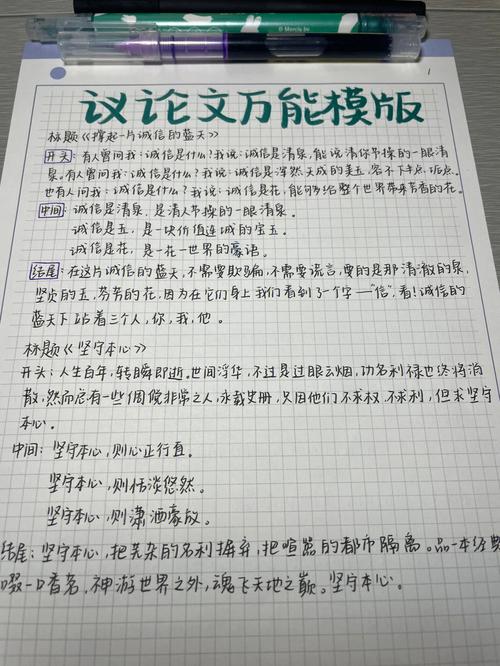 议论文万能模版
标题《撑起一片诚信的蓝天》
开头：有人曾问我：诚信是什么？我说：诚信是清泉，能说清你节操的一眼清
泉。有人曾问我：诚信是什么？我说：诚信是浑然天成的美玉，容不下半点垢点。
也有人问我：诚信是什么？我说：诚信是花，能够给整个世界带来芳香的花。
中间：诚信是清泉，是清人节操的一眼清泉。
诚信是玉，是一块价值连城的宝玉。
诚信是花，是一花一世界的豪语。
结尾：在这片诚信的蓝天，不需要欺骗，不需要谎言，要的是那清澈的泉，
坚贞的玉，芬芳的花，因为在它们身上我们看到了一个字—"信"，看！诚信的
蓝天下站着三个人，你，我，他。
标题《坚守本心》
开头：人生百年，转瞬即逝。世间浮华，不过是过眼云烟，功名利禄也终将消
散，然而总有一些倜傥非常之人，永载史册，只因他们不求权，不求利，但求坚守
本心。
中间：坚守本心，则心正行直。
坚守本心，则恬淡悠然。
坚守本心，则潇洒豪放。
结尾：坚守本心，把芜杂的名利摒弃，把喧嚣的都市隔离。品一本经典
啜一口香茗，神游世界之外，魂飞天地之巅。坚守本心。